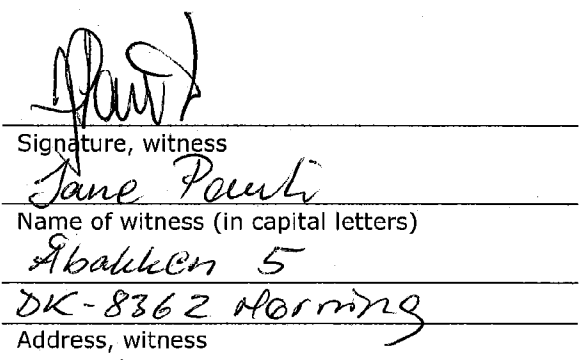 Signature, witness
Jane Pauli
Name of witness (in capital letters)
Åbakken 5
DK-8362 Hørning
Address, witness